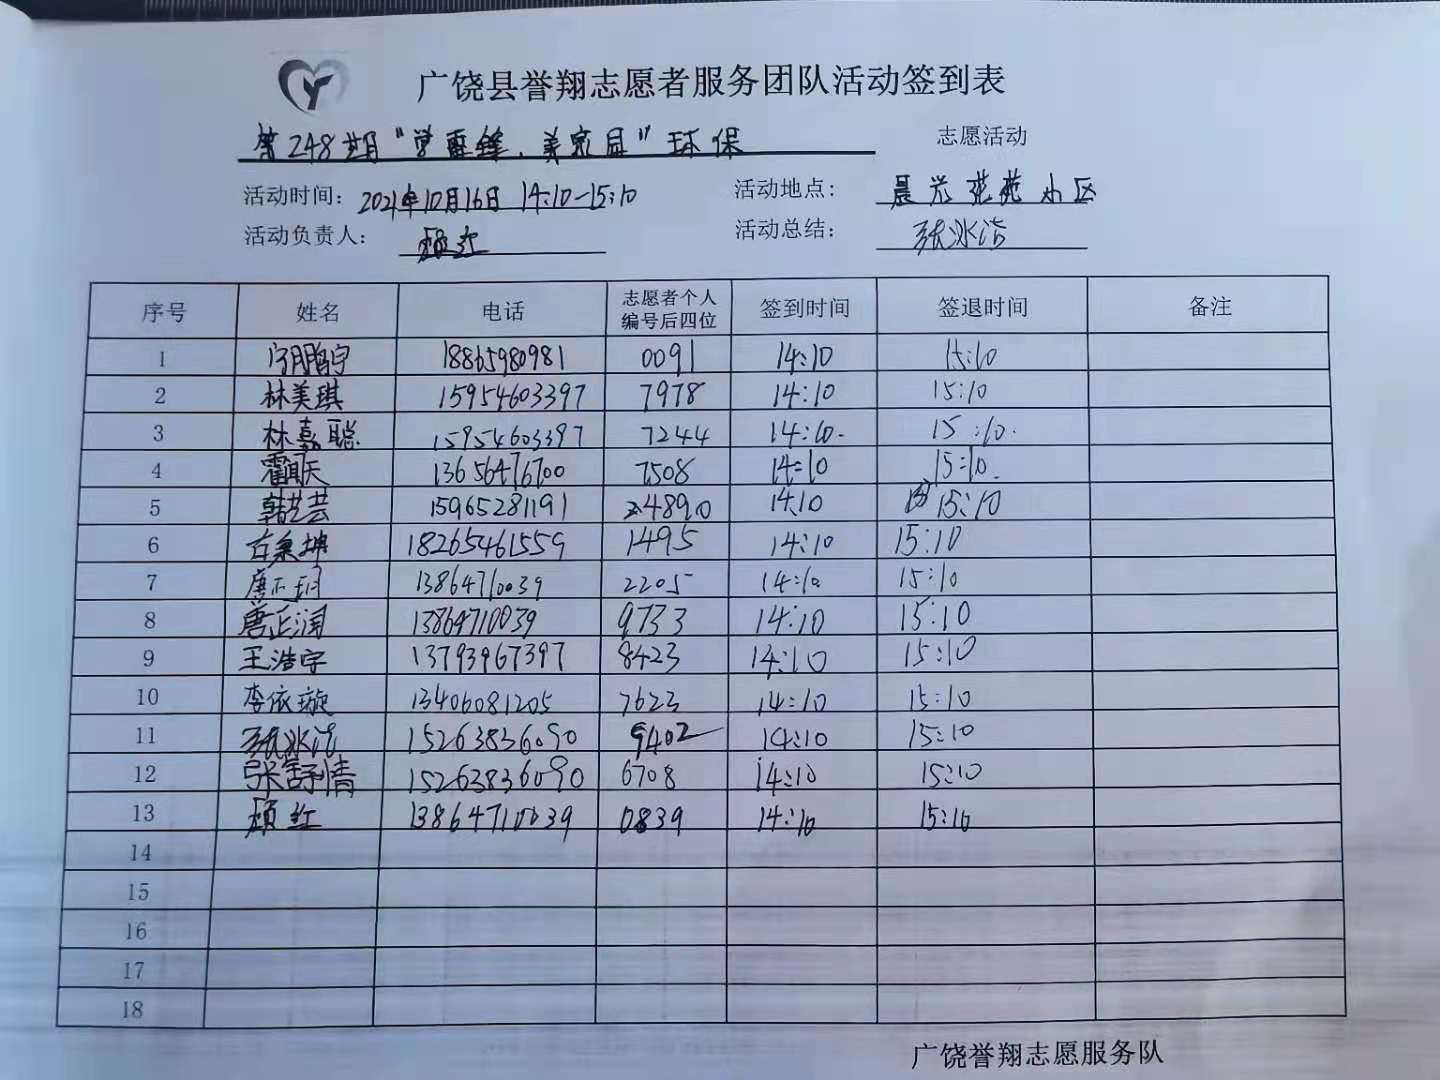 广饶县誉翔志愿者服务团队活动签到表
第248期“学雷锋.美家园”环保 志愿活动
活动时间：2021年10月16日 14:10-15:10 活动地点：晨兴花苑小区
活动负责人：顾红 活动总结：张冰洁
序号 姓名 电话 志愿者个人编号后四位 签到时间 签退时间 备注
1 宁鹏宇 18865980981 0091 14:10 15:10
2 林美琪 15954603397 7978 14:10 15:10
3 林嘉聪 15954603397 7244 14:10. 15:10.
4 霍闻天 13656476700 7508 14:10 15:10.
5 韩艺芸 15965281191 4890 14:10 15:10
6 古秉坤 18265461559 1495 14:10 15:10
7 唐正玥 13864710039 2205 14:10 15:10
8 唐正润 13864710039 9733 14:10 15:10
9 王浩宇 13793967397 8423 14:10 15:10
10 李依璇 13406081205 7623 14:10 15:10
11 张冰洁 15263836090 9402 14:10 15:10
12 张舒情 15263836090 6708 14:10 15:10
13 顾红 13864710039 0839 14:10 15:10
14
15
16
17
18
广饶誉翔志愿服务队